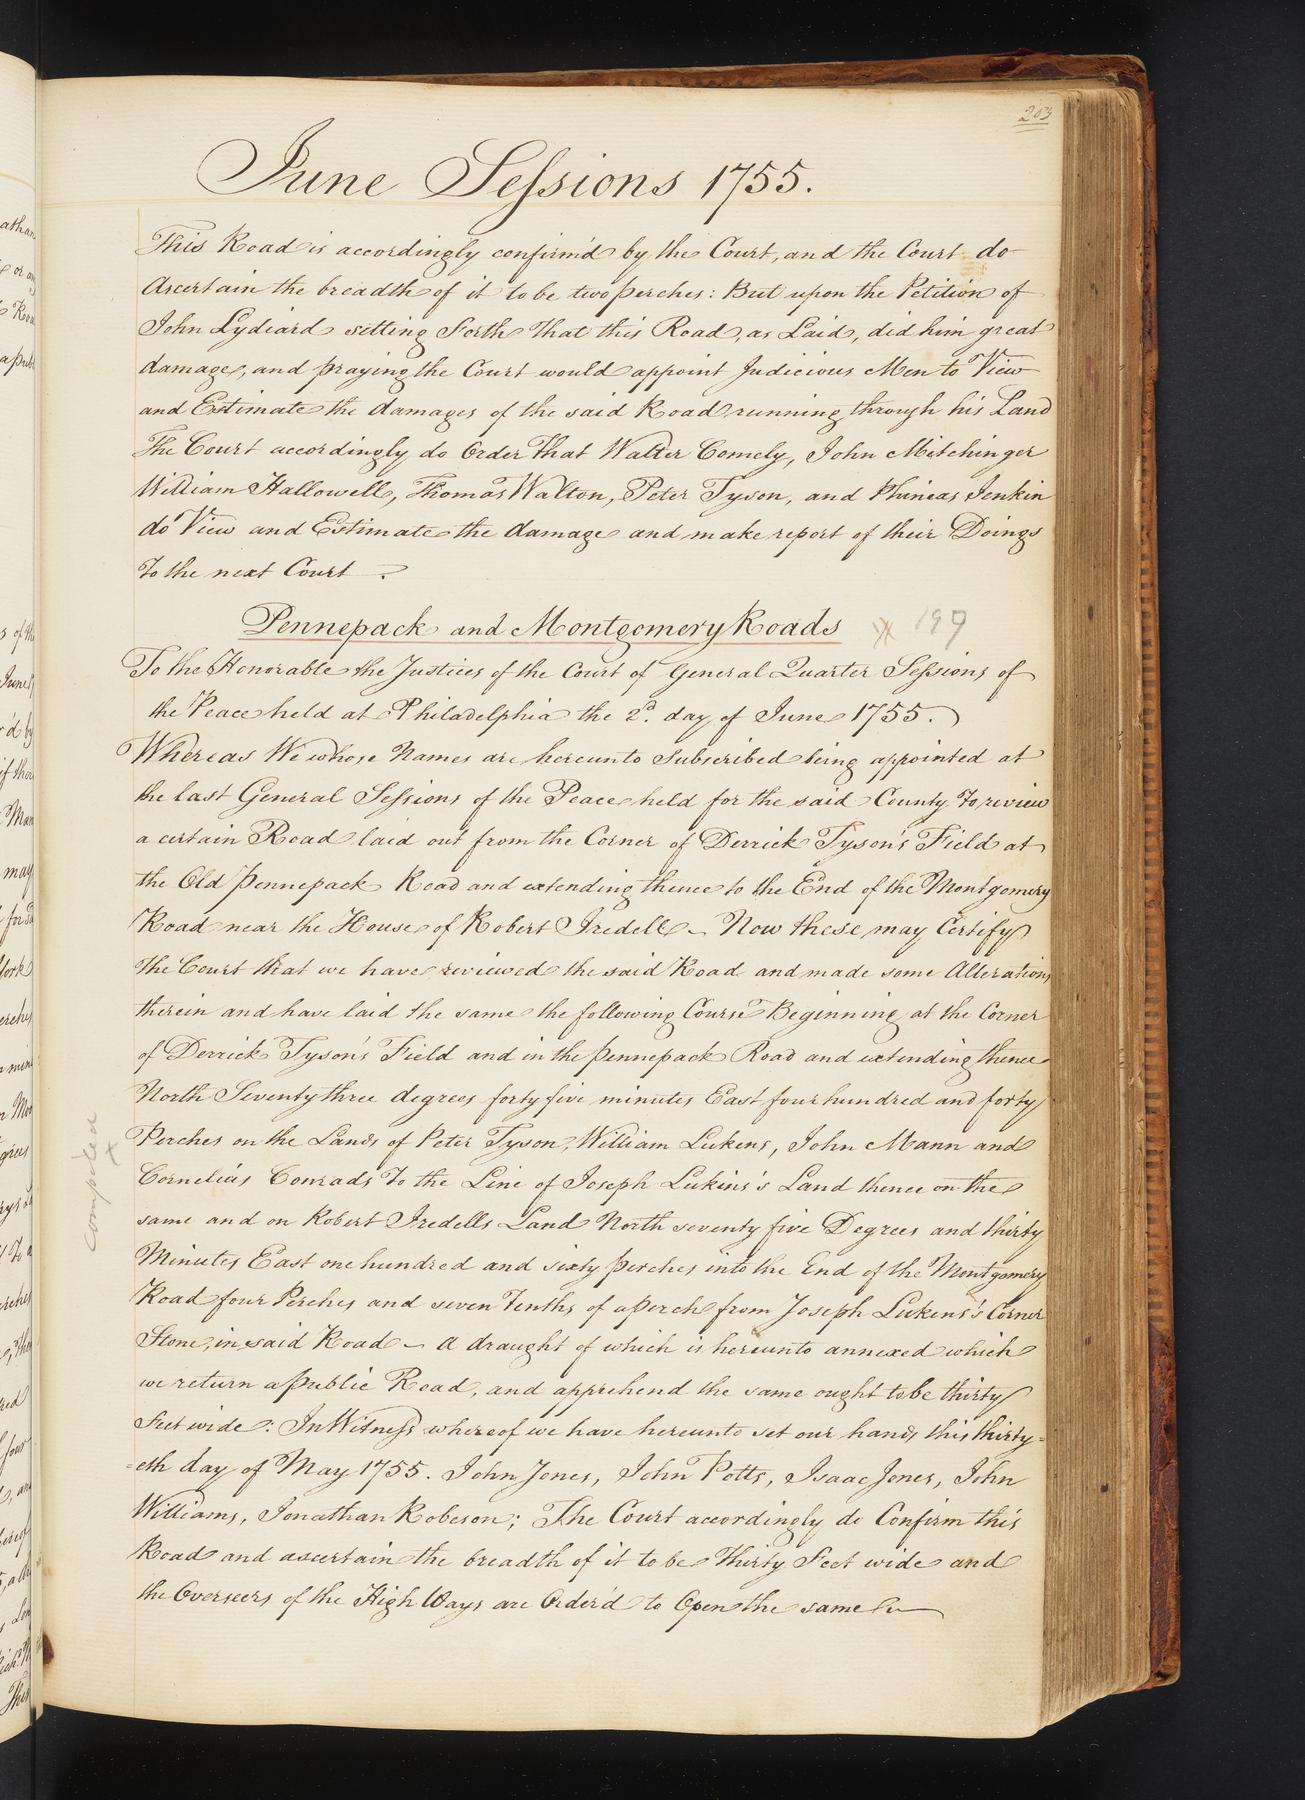 203
June Sessions 1755.
This Road is accordingly confirm'd by the Court, and the Court do
Ascertain the breadth of it to be two perches: But upon the Petition of
John Lydiard setting Forth That this Road, as Laid, did him great
damage, and praying the Court would appoint Judicious Men to View
and Estimate the damages of the said Road running through his Land
The Court accordingly do Order That Walter Comely, John Mitchinger
William Hallowell, Thomas Walton, Peter Tyson, and Phineas Jenkin
do View and Estimate the damage and make report of their Doings
To the next Court.
Pennepack and Montgomery Roads 199
To the Honorable the Justices of the Court of General Quarter Sessions of
the Peace held at Philadelphia the 2d. day of June 1755.
Whereas We whose Names are hereunto Subscribed being appointed at
the last General Sessions of the Peace held for the said County To review
a certain Road laid out from the Corner of Derrick Tyson's Field at
the Old Pennepack Road and extending thence to the End of the Montgomery
Road near the House of Robert Iredell - Now these may Certify
The Court that we have reviewed the said Road and made some Alterations
therein and have laid the same the following Course Beginning at the Corner
of Derrick Tyson's Field and in the Pennepack Road and extending thence
North Seventy three degrees forty five minutes East four hundred and forty
Perches on the Lands of Peter Tyson, William Lukens, John Mann and
Cornelias Conrads To the Line of Joseph Lukins's Land thence on the
same and on Robert Iredells Land North seventy five Degrees and thirty
Minutes East one hundred and sixty perches into the End of the Montgomery
Road four Perches and seven Tenths of a perch from Joseph Lukens's Corner
Stone, in said Road - A draught of which is hereunto annexed which
we return a Public Road, and apprehend the same ought to be thirty
Feet wide: In Witness whereof we have hereunto set our hands this thirty=
=eth day of May 1755. John Jones, John Potts, Isaac Jones, John
Williams, Jonathan Robeson; The Court accordingly do Confirm this
Road and ascertain the breadth of it to be Thirty Feet wide and
the Overseers of the High Ways are Order'd to Open the same
compiled
x